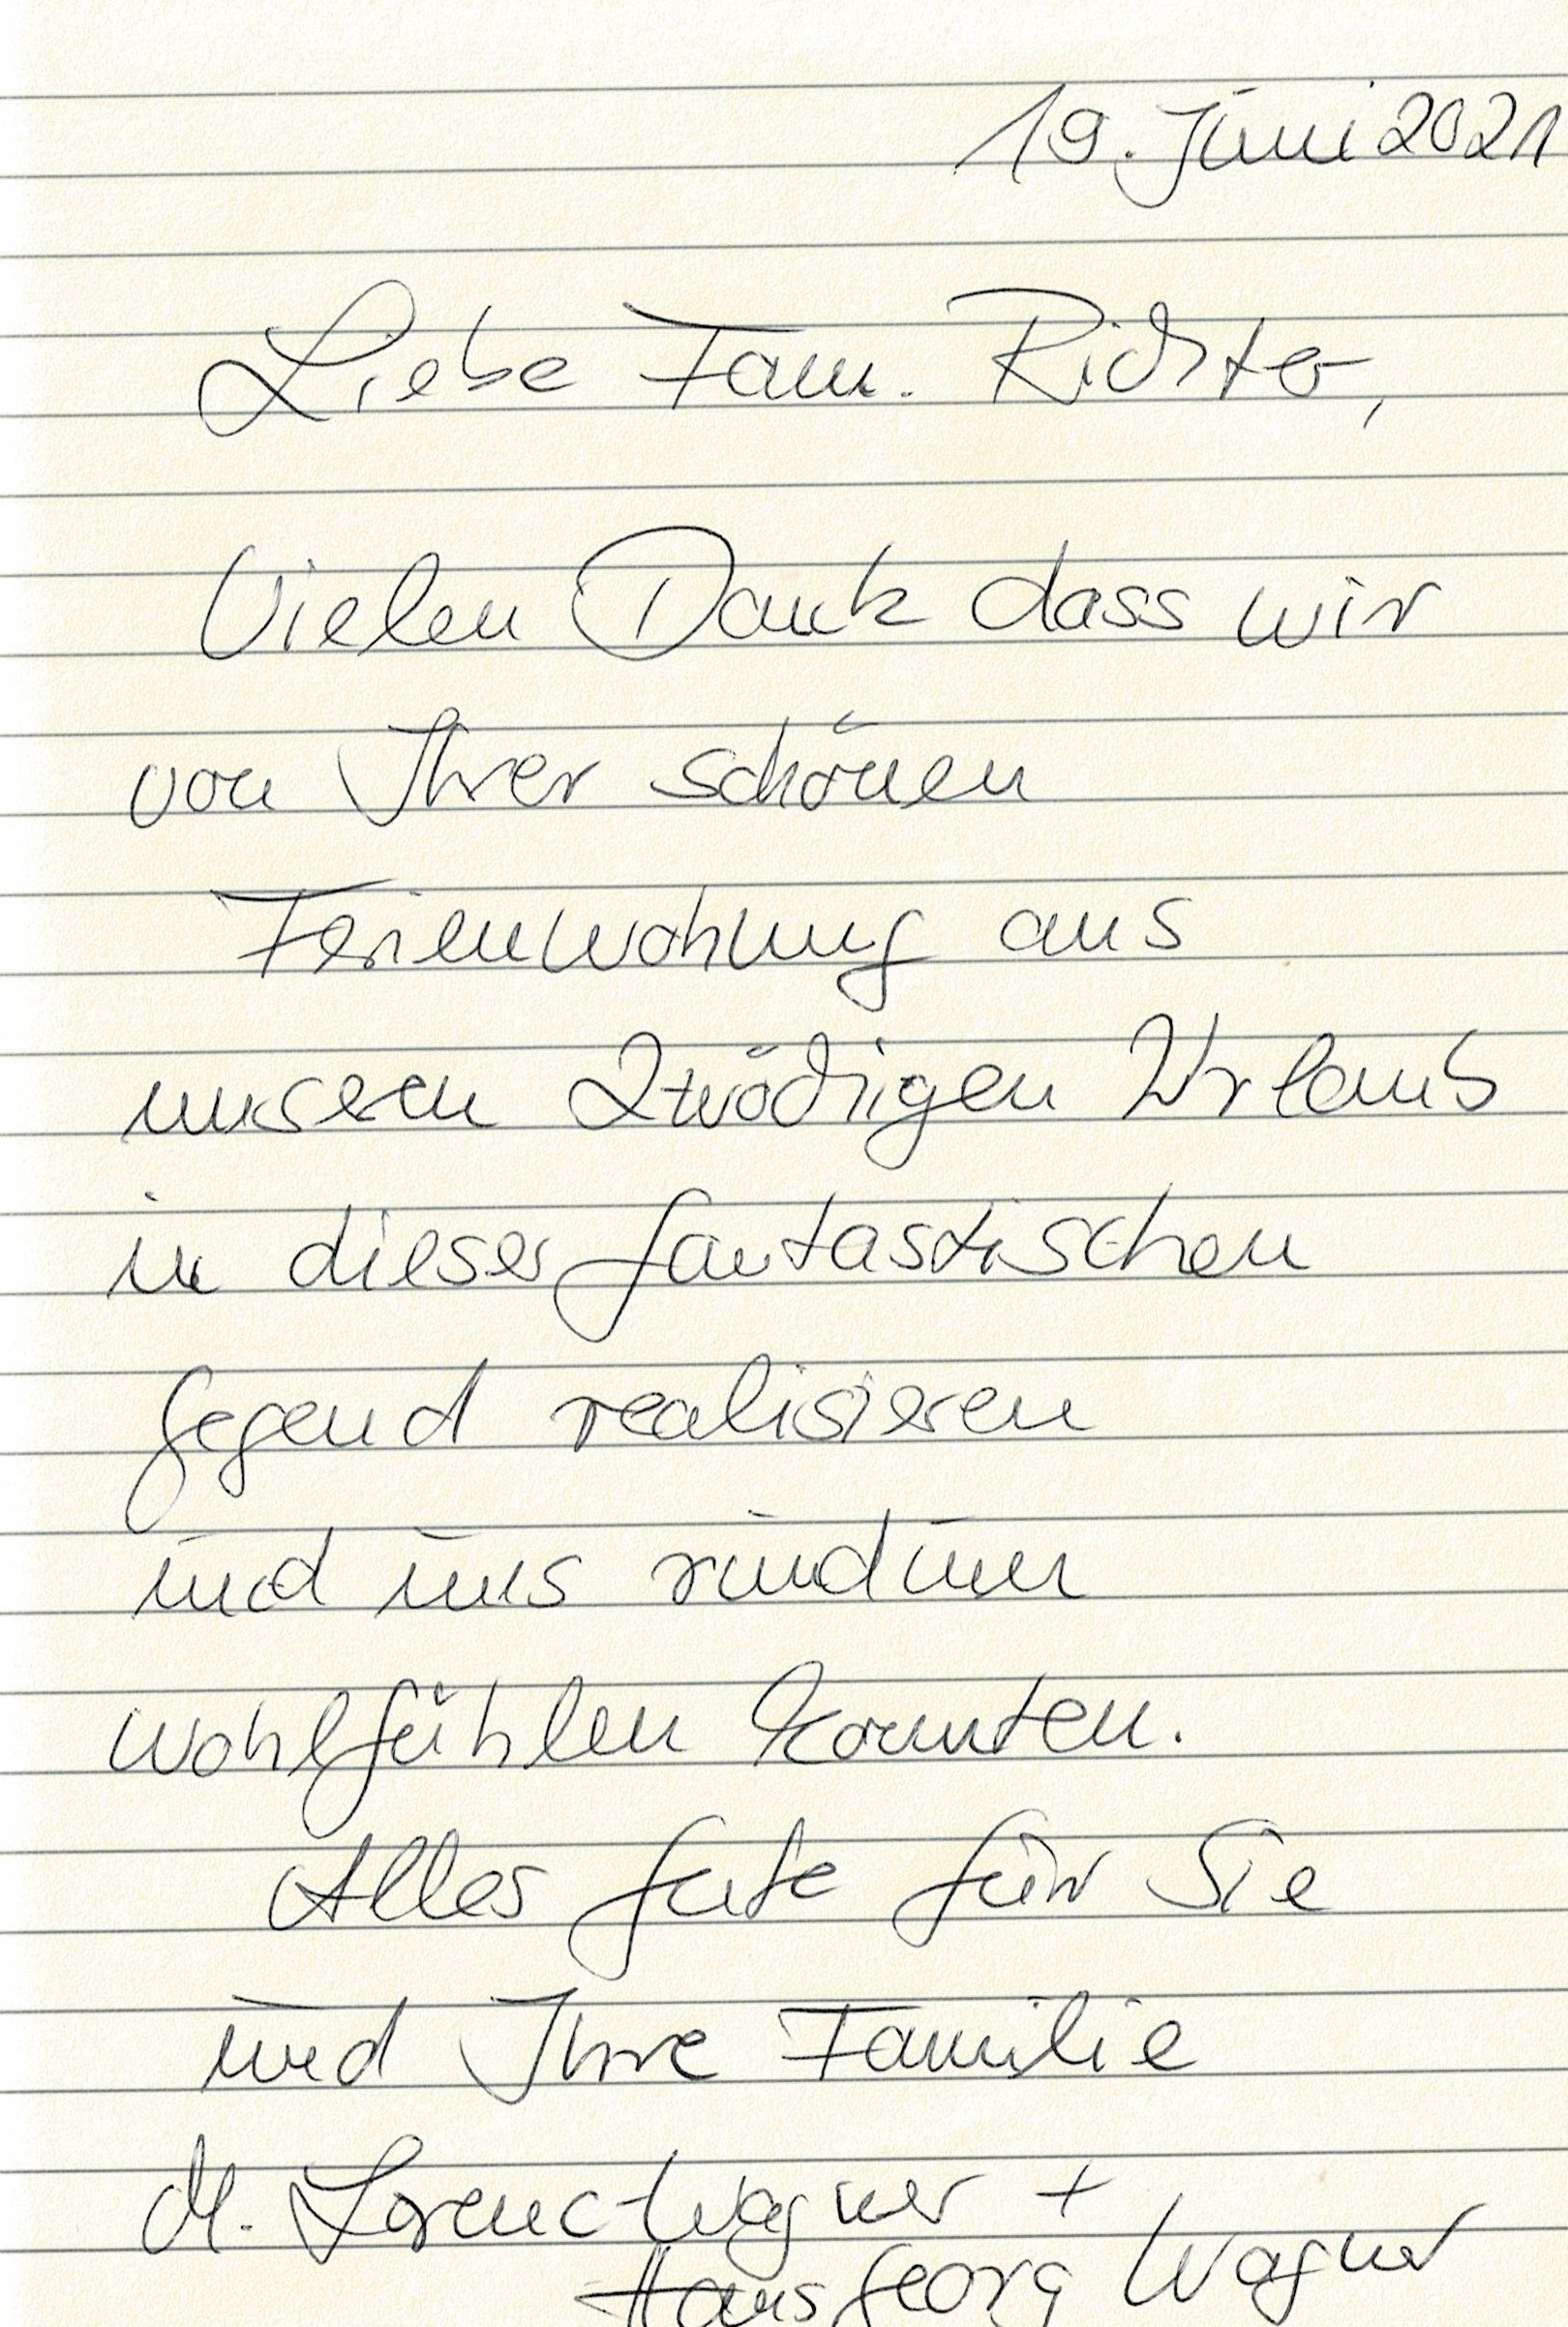 19. Juni 2021
Liebe Fam. Richter,
Vielen Dank dass wir
von Ihrer schönen
Ferienwohnung aus
unseren 2wöchigen Urlaub
in dieser fantastischen
Gegend realisieren
und uns rundum
wohlfühlen konnten.
Alles Gute für Sie
und Ihre Familie
M. Lorenc-Wagner +
Hans Georg Wagner